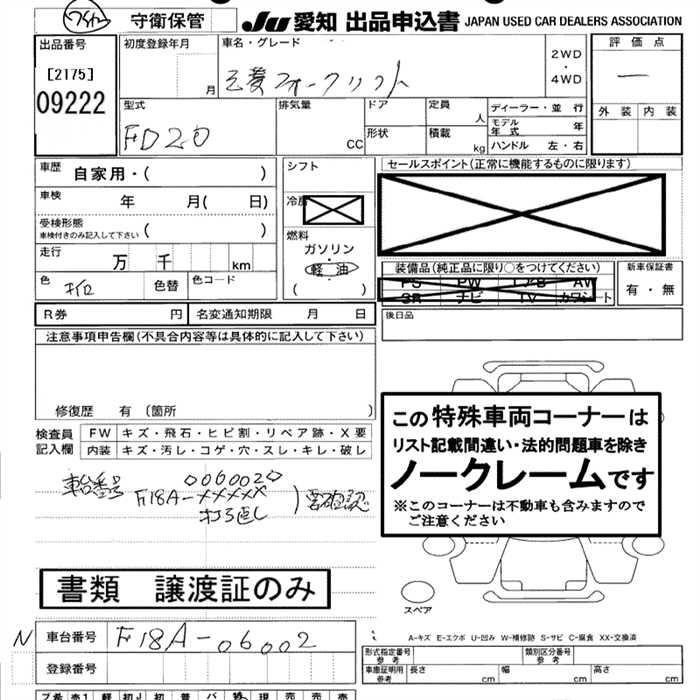 守衛保管 JU 愛知 出品申込書 JAPAN USED CAR DEALERS ASSOCIATION
出品番号 [2175] 09222
初度登録年月 月
車名・グレード 三菱フォークリフト 2WD・4WD
評価点 ー
外装 内装
型式 FD20
排気量 CC
ドア 形状
定員 人
積載 kg
ディーラー・並 行
モデル年式 年
ハンドル 左・右
車歴 自家用・( )
車検 年 月( 日)
受検形態 車検付きのみ記入して下さい ( )
走行 万 千 km
色 色替 色コード
シフト
冷房
燃料 ガソリン 軽油 ( )
セールスポイント(正常に機能するものに限ります)
装備品(純正品に限り○をつけてください)
PS PW エアB AW
SR ナビ TV カワシート
新車保証書 有・無
後日品
R券 円 名変通知期限 月 日
注意事項申告欄(不具合内容等は具体的に記入して下さい)
修復歴 有 (箇所 )
検査員記入欄
FW キズ・飛石・ヒビ割・リペア跡・X要
内装 キズ・汚レ・コゲ・穴・スレ・キレ・破レ
この特殊車両コーナーは
リスト記載間違い・法的問題車を除き
ノークレームです
※このコーナーは不動車も含みますので
ご注意ください
車台番号 0060020
F18A-XXXXX
打ち直し
書類 譲渡証のみ
スペア
N 車台番号 F18A-06002
登録番号
A-キズ E-エクボ U-凹み W-補修跡 S-サビ C-腐食 XX-交換済
形式指定番号 参考
類別区分番号 参考
車庫証明用 参考 長さ cm 幅 cm 高さ cm